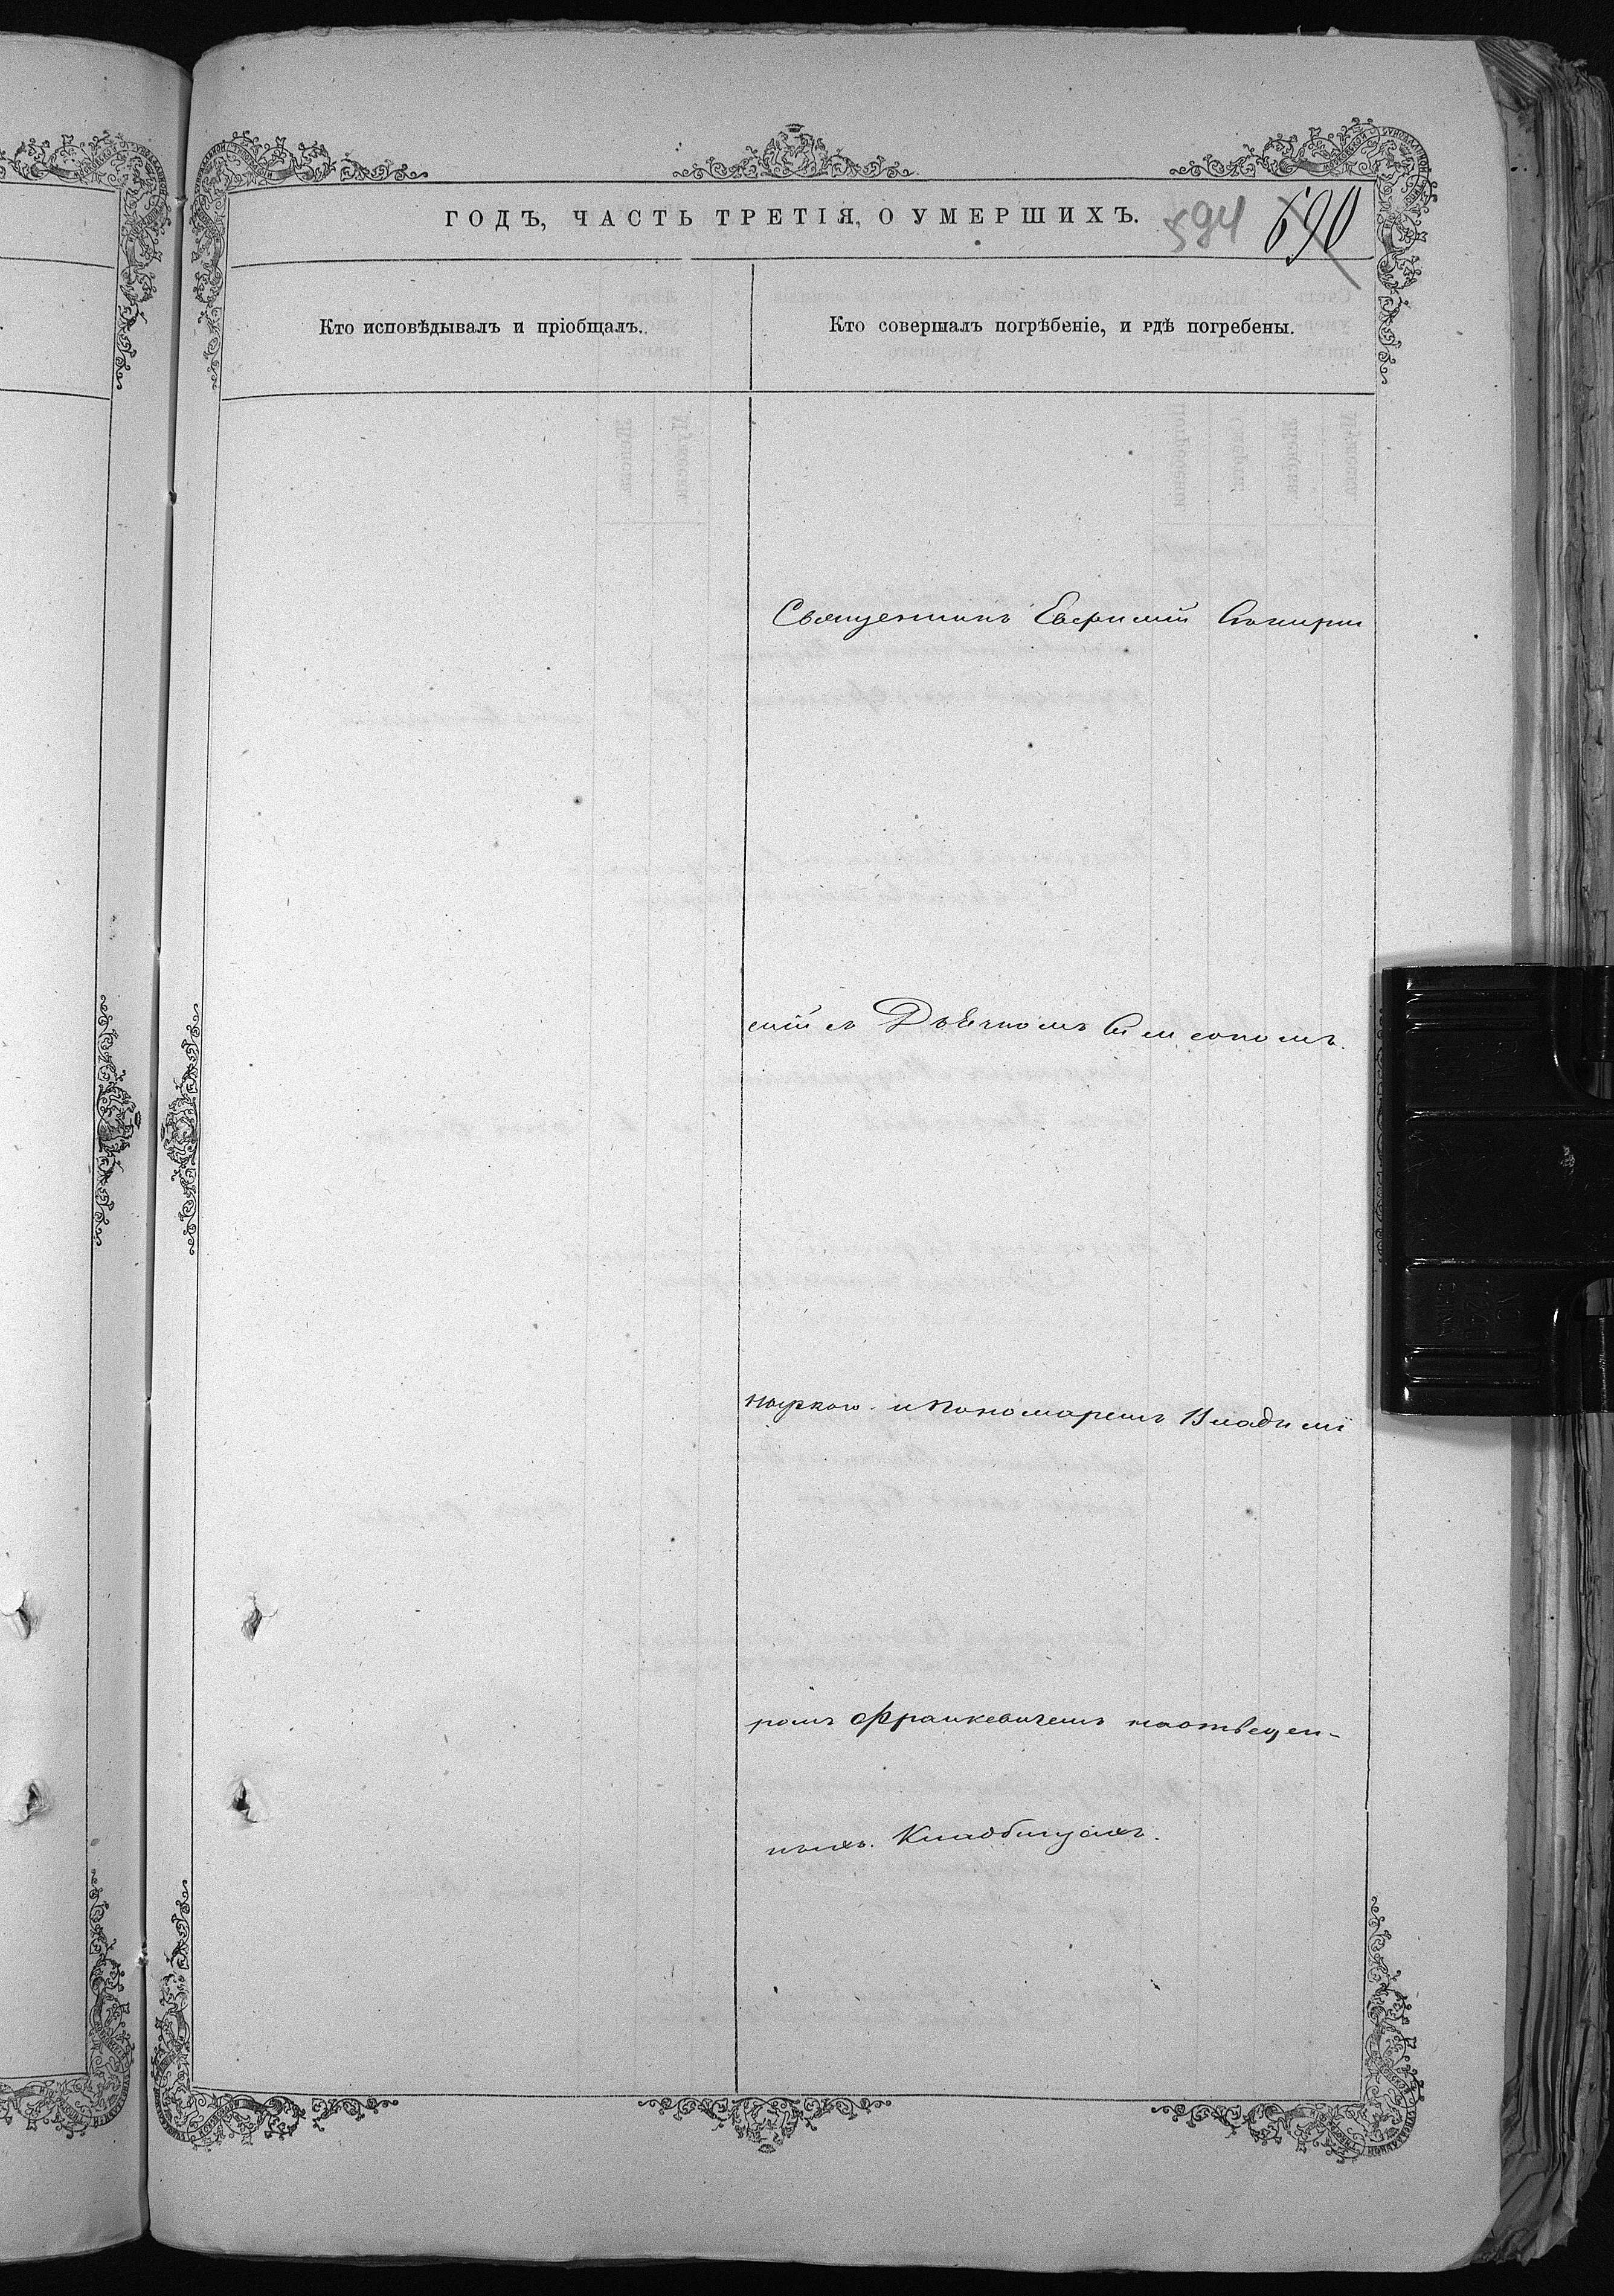 ГОДЪ, ЧАСТЬ ТРЕТІЯ, О УМЕРШИХЪ. 594 690
Кто исповѣдывалъ и пріобщалъ. Кто совершалъ погрѣбеніе, и гдѣ погребены.
Священникъ Евфимій
скій съ Дьячкомъ Симеономъ
и Пономаремъ Владимі
ромъ Франкевичемъ наотведен-
ныхъ Кладбищахъ.